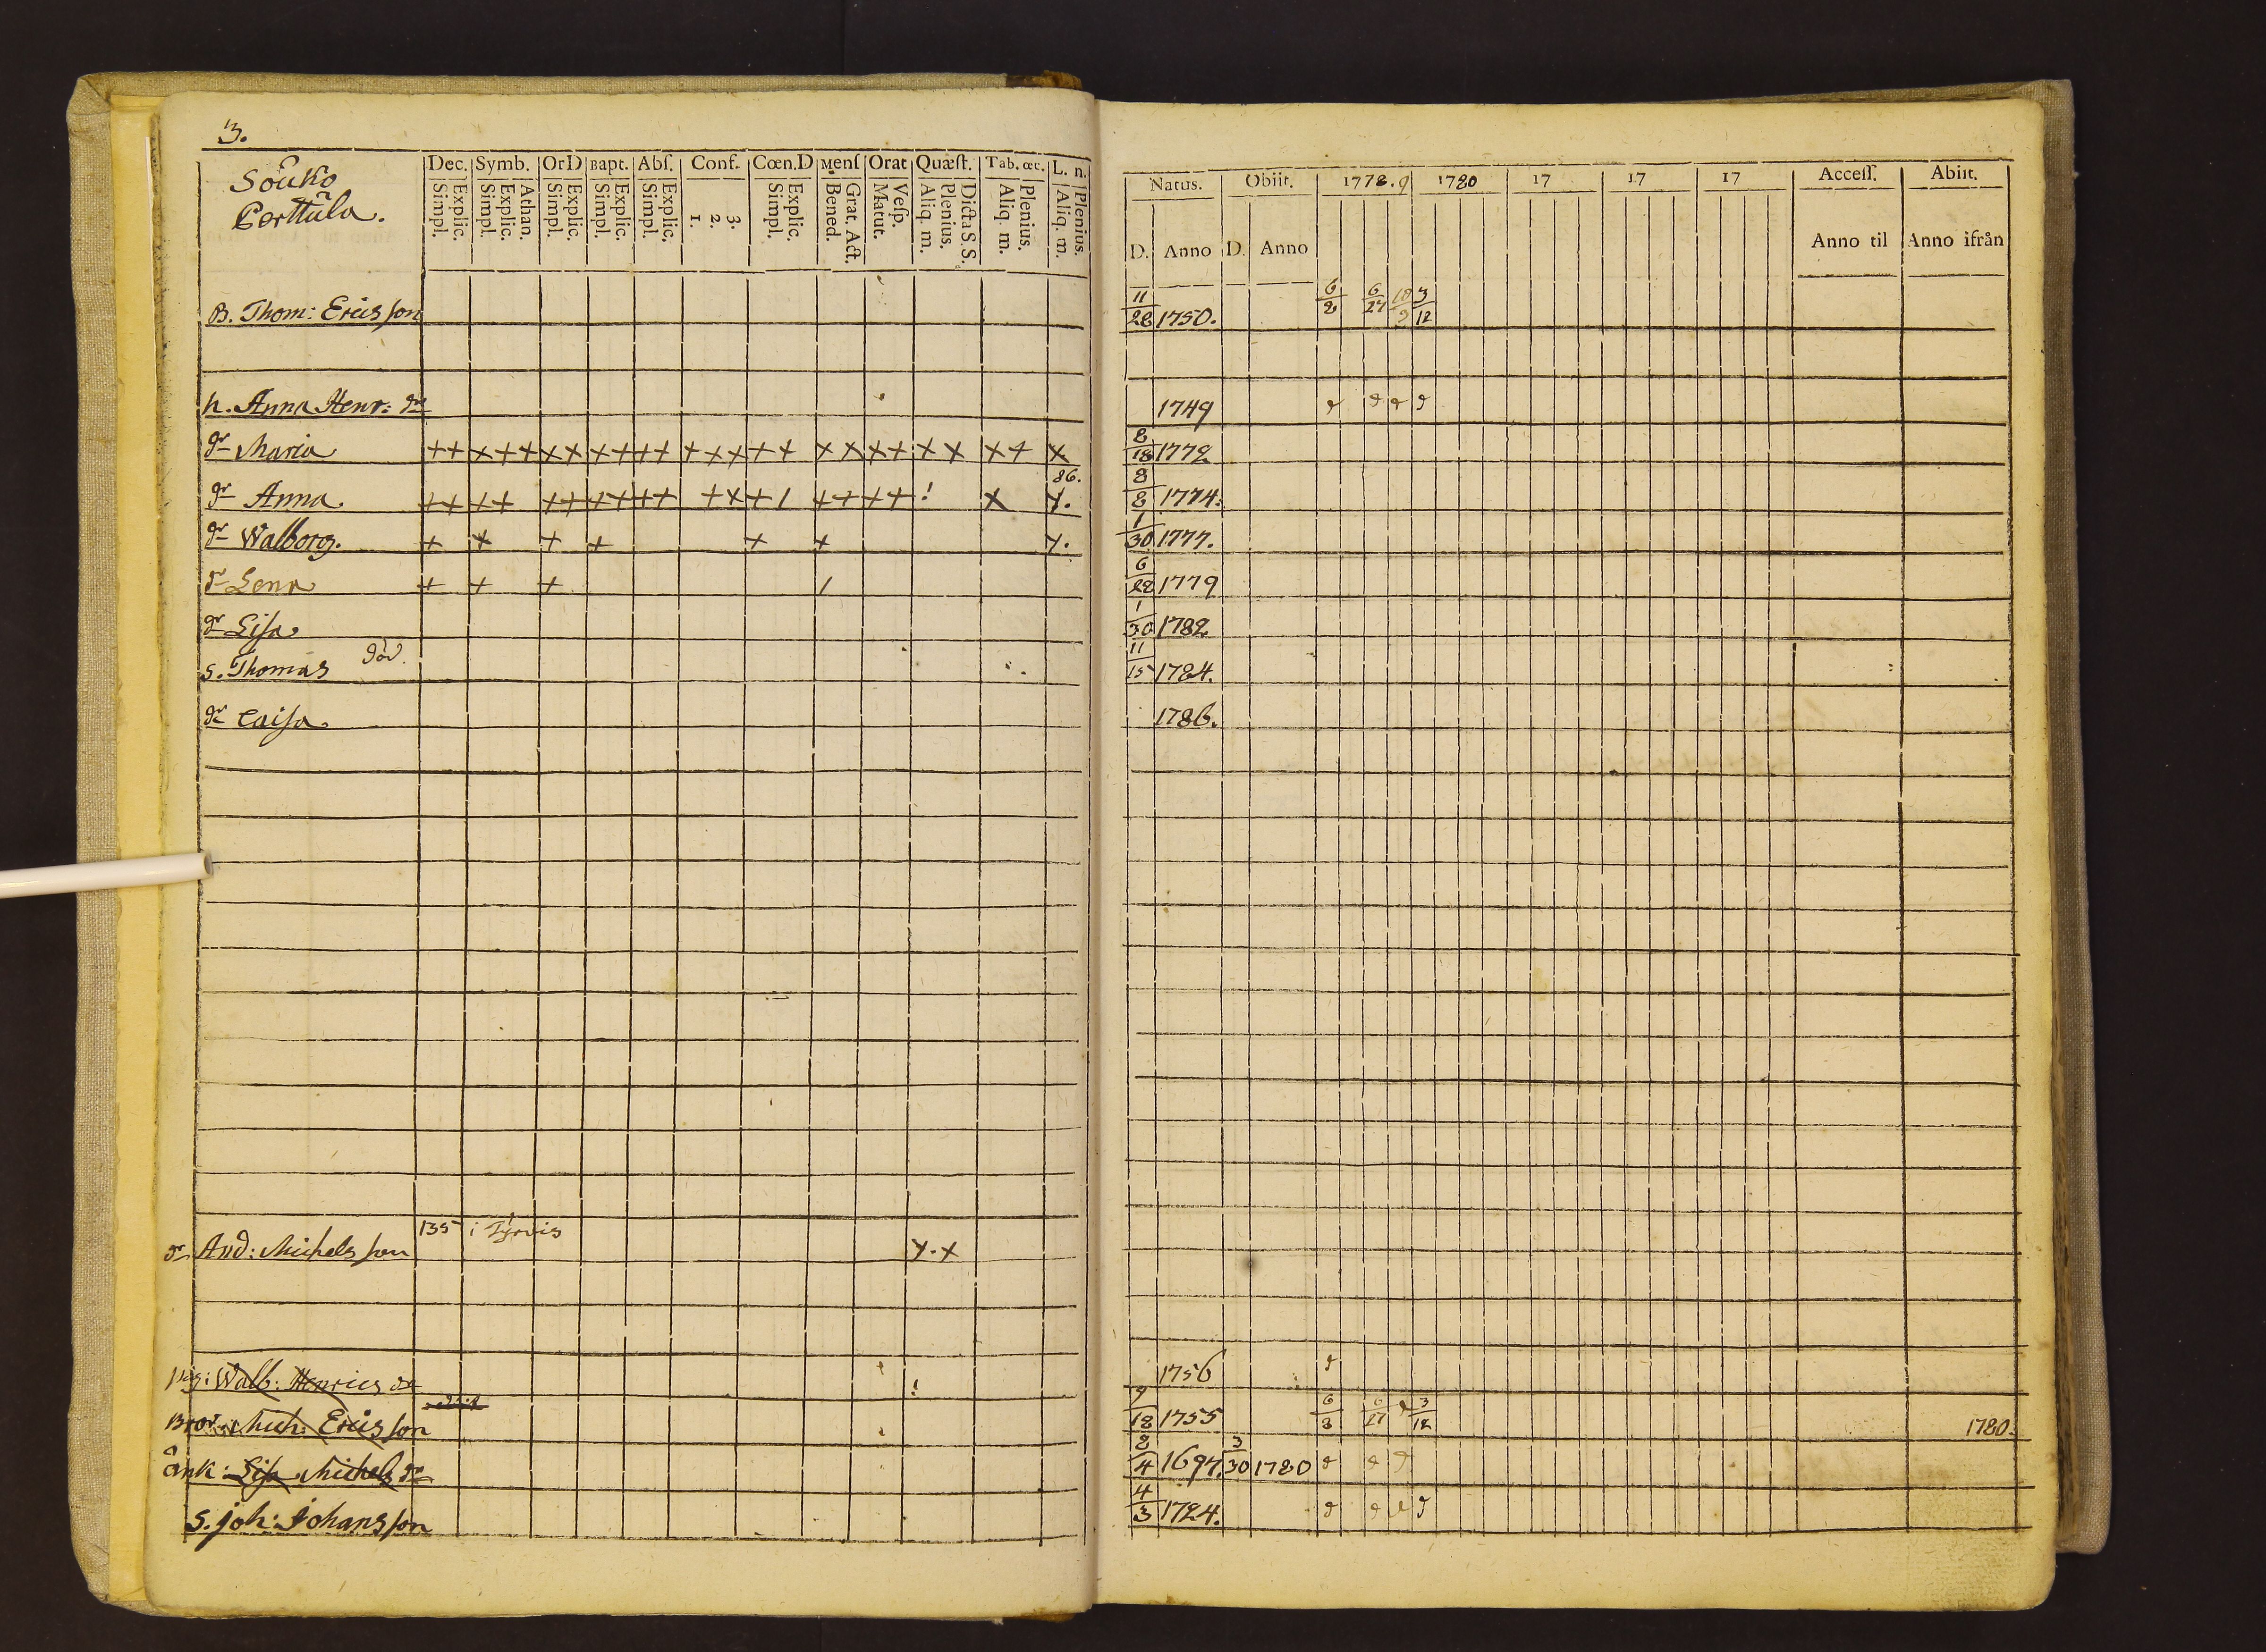 3.
Souko
Perttula.
Dec. Symb. OrD Bapt. Abſ. Conf. Cœn.D Menſ Orat Quæſt. Tab. œc. L. n.
Explic. Simpl. Athan. Explic. Simpl. Explic. Simpl. Explic. Simpl. Explic. Simpl. 3. 2. 1. Explic. Simpl. Grat. Act. Bened. Veſp. Matut. Dicta S. S. Plenius. Aliq. m. Plenius. Aliq. m. Plenius. Aliq. m.
Natus. Obiit. 1778.9 1780 17 17 17 Acceſſ. Abiit.
D. Anno D. Anno Anno til Anno ifrån
B. Thom: Ericsson 11/28 1750. 6/2 6/27 3/12
h. Anna Henr: dr 1749
dr Maria ++ x++ xx +++++ +xx ++ xx x+ xx x+ x 8/18 1772
86.
dr Anna ++ ++ +++++++ +x + / ++ ++ ! x x. 8/8 1774.
dr Walborg. + x + + + + x. 1/30 1777.
dr Lena + + + / 6/22 1779
dr Lisa 1/30 1782
s. Thomas död. 11/15 1784.
dr Caisa. 1786.
135 i Tyrvis
And: Michelsson x. x
pig: Walb: Henrics dr ! 1756
Bror Mich: Ericsson 9/18 1755 6/3 6/27 3/12 1780.
änk: Lisa Michels dr 2/4 1697. 3/30 1780
s. joh: Johansson 4/3 1724.